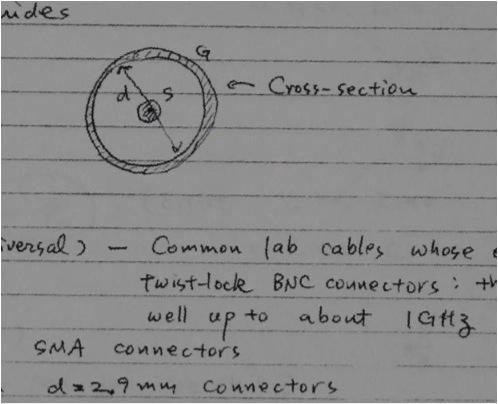 G
d S
← Cross-section
— Common lab cables whose
twist-lock BNC connectors :
well up to about 1GHz
SMA connectors
d=2.9mm connectors